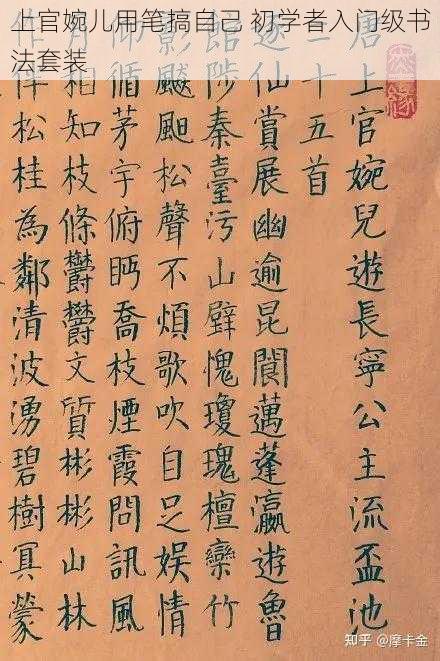 上官婉儿用笔搞自己 初学者入门级书
法套装
唐上官婉兒遊長寧公主流盃池
二十五首
逐仙賞展幽逾昆閬邁蓬瀛遊魯
館陟秦臺污山壁愧瓊瑰檀欒竹
影飈松聲不煩歌吹自足娛情
仰循茅宇俯眄喬枝煙霞問訊風
月相知枝條欝欝文質彬彬山林
作伴松桂為鄰清波湧碧樹冥蒙
知乎 @摩卡金